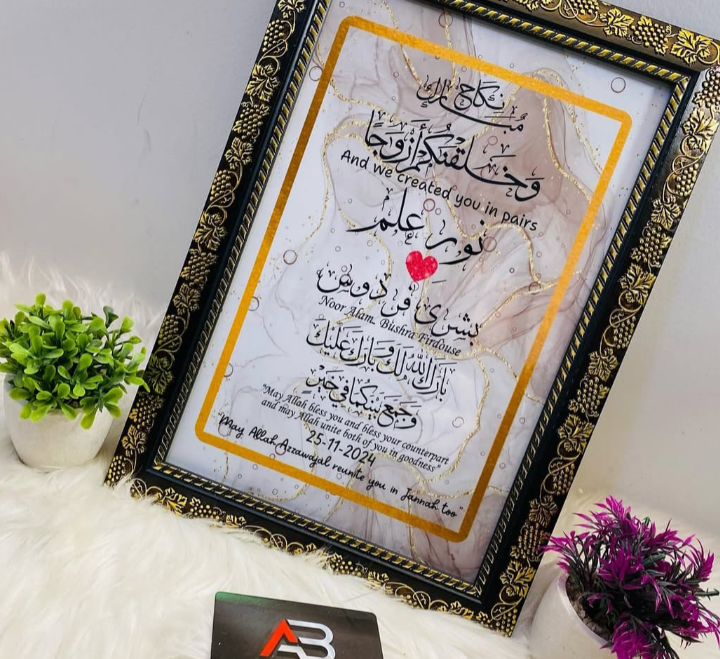 نكاح مبارك
وَخَلَقْنَكُمْ أَزْوَجًا
And we created you in pairs
نور علم
بشری فردوس
Noor Alam Bushra Firdouse
بَارَكَ اللهُ لَكَ وَبَارَكَ عَلَيْكَ
وَجَمَعَ بَيْنَكُمَا فِي خَيْرٍ
"May Allah bless you and bless your counterpart
and may Allah unite both of you in goodness"
25-11-2024
"May Allah Azzawajal reunite you in Jannah too"
AB